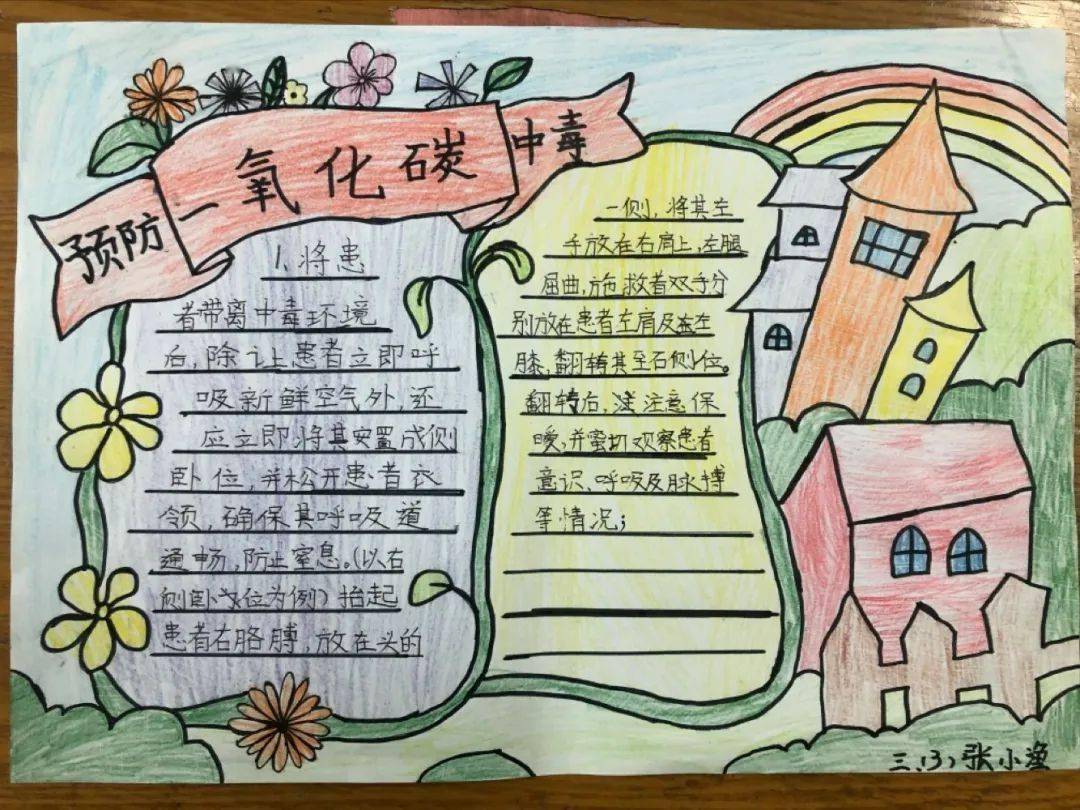 预防一氧化碳中毒
1、将患
者带离中毒环境
后，除让患者立即呼
吸新鲜空气外，还
应立即将其安置成侧
卧位，并松开患者衣
领，确保其呼吸道
通畅，防止窒息。（以右
侧卧位为例）抬起
患者右胳膊，放在头的
一侧，将其左
手放在右肩上，左腿
屈曲，施救者双手分
别放在患者左肩及左
膝，翻转其至右侧位。
翻转后，注意保
暖，并密切观察患者
意识、呼吸及脉搏
等情况；
三、（3）张小渔